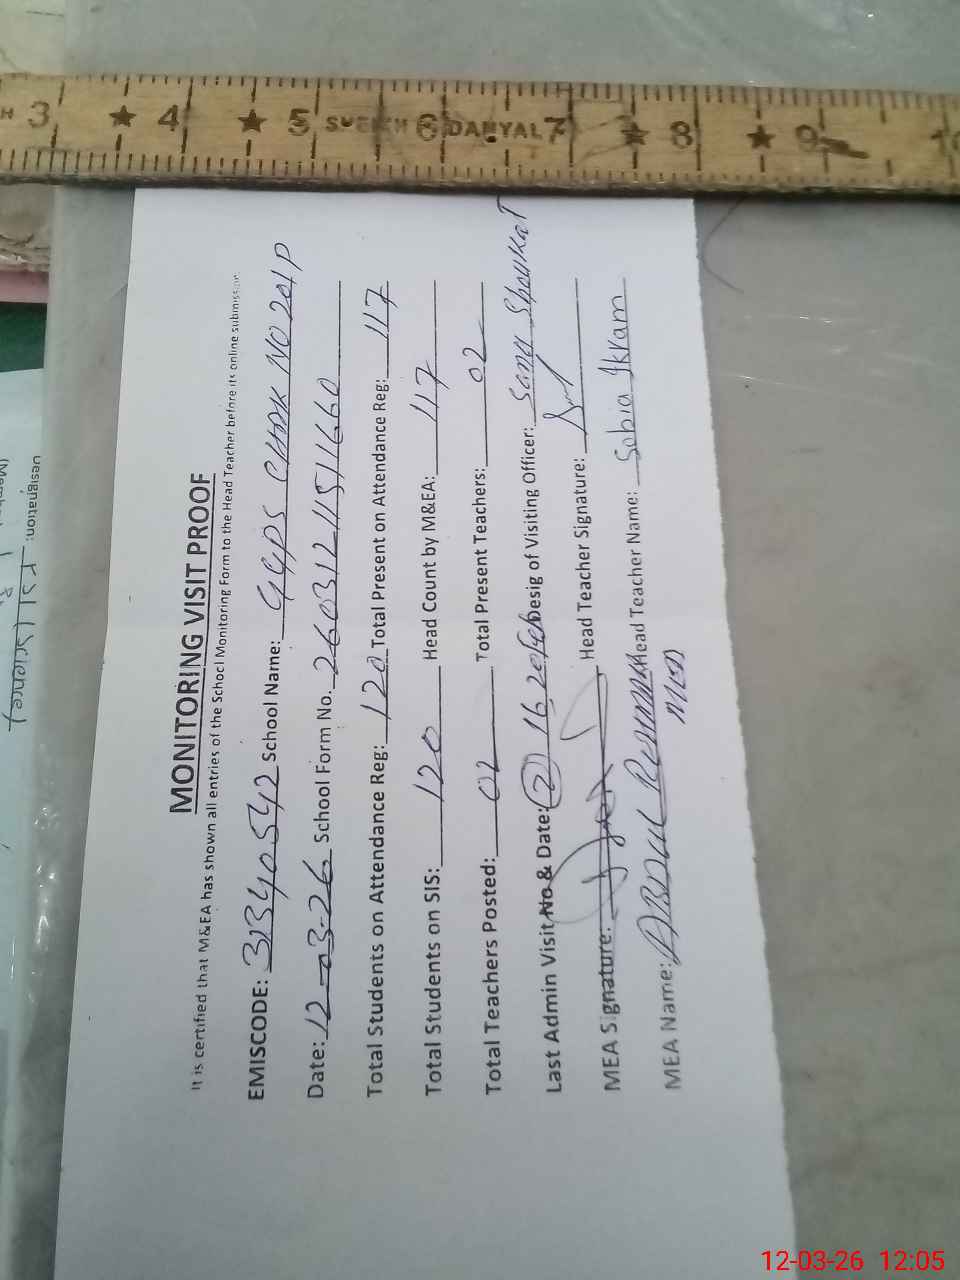 3 ★ 4 ★ 5 SHEIKH 6 DANYAL 7 ★ 8 ★ 9 10
MONITORING VISIT PROOF
It is certified that M&EA has shown all entries of the School Monitoring Form to the Head Teacher before its online submission.
EMISCODE: 31340542 School Name: GGPS CHAK NO 201P
Date: 12-03-26 School Form No. 260312-11511660
Total Students on Attendance Reg: 120 Total Present on Attendance Reg: 117
Total Students on SIS: 120 Head Count by M&EA: 117
Total Teachers Posted: 02 Total Present Teachers: 02
Last Admin Visit No & Date: 2 16 Desig of Visiting Officer: Sana Shoukat
MEA Signature: Head Teacher Signature:
MEA Name: Abdul Rehman Head Teacher Name: Sobia Ikram
MEA
Designation:
12-03-26 12:05